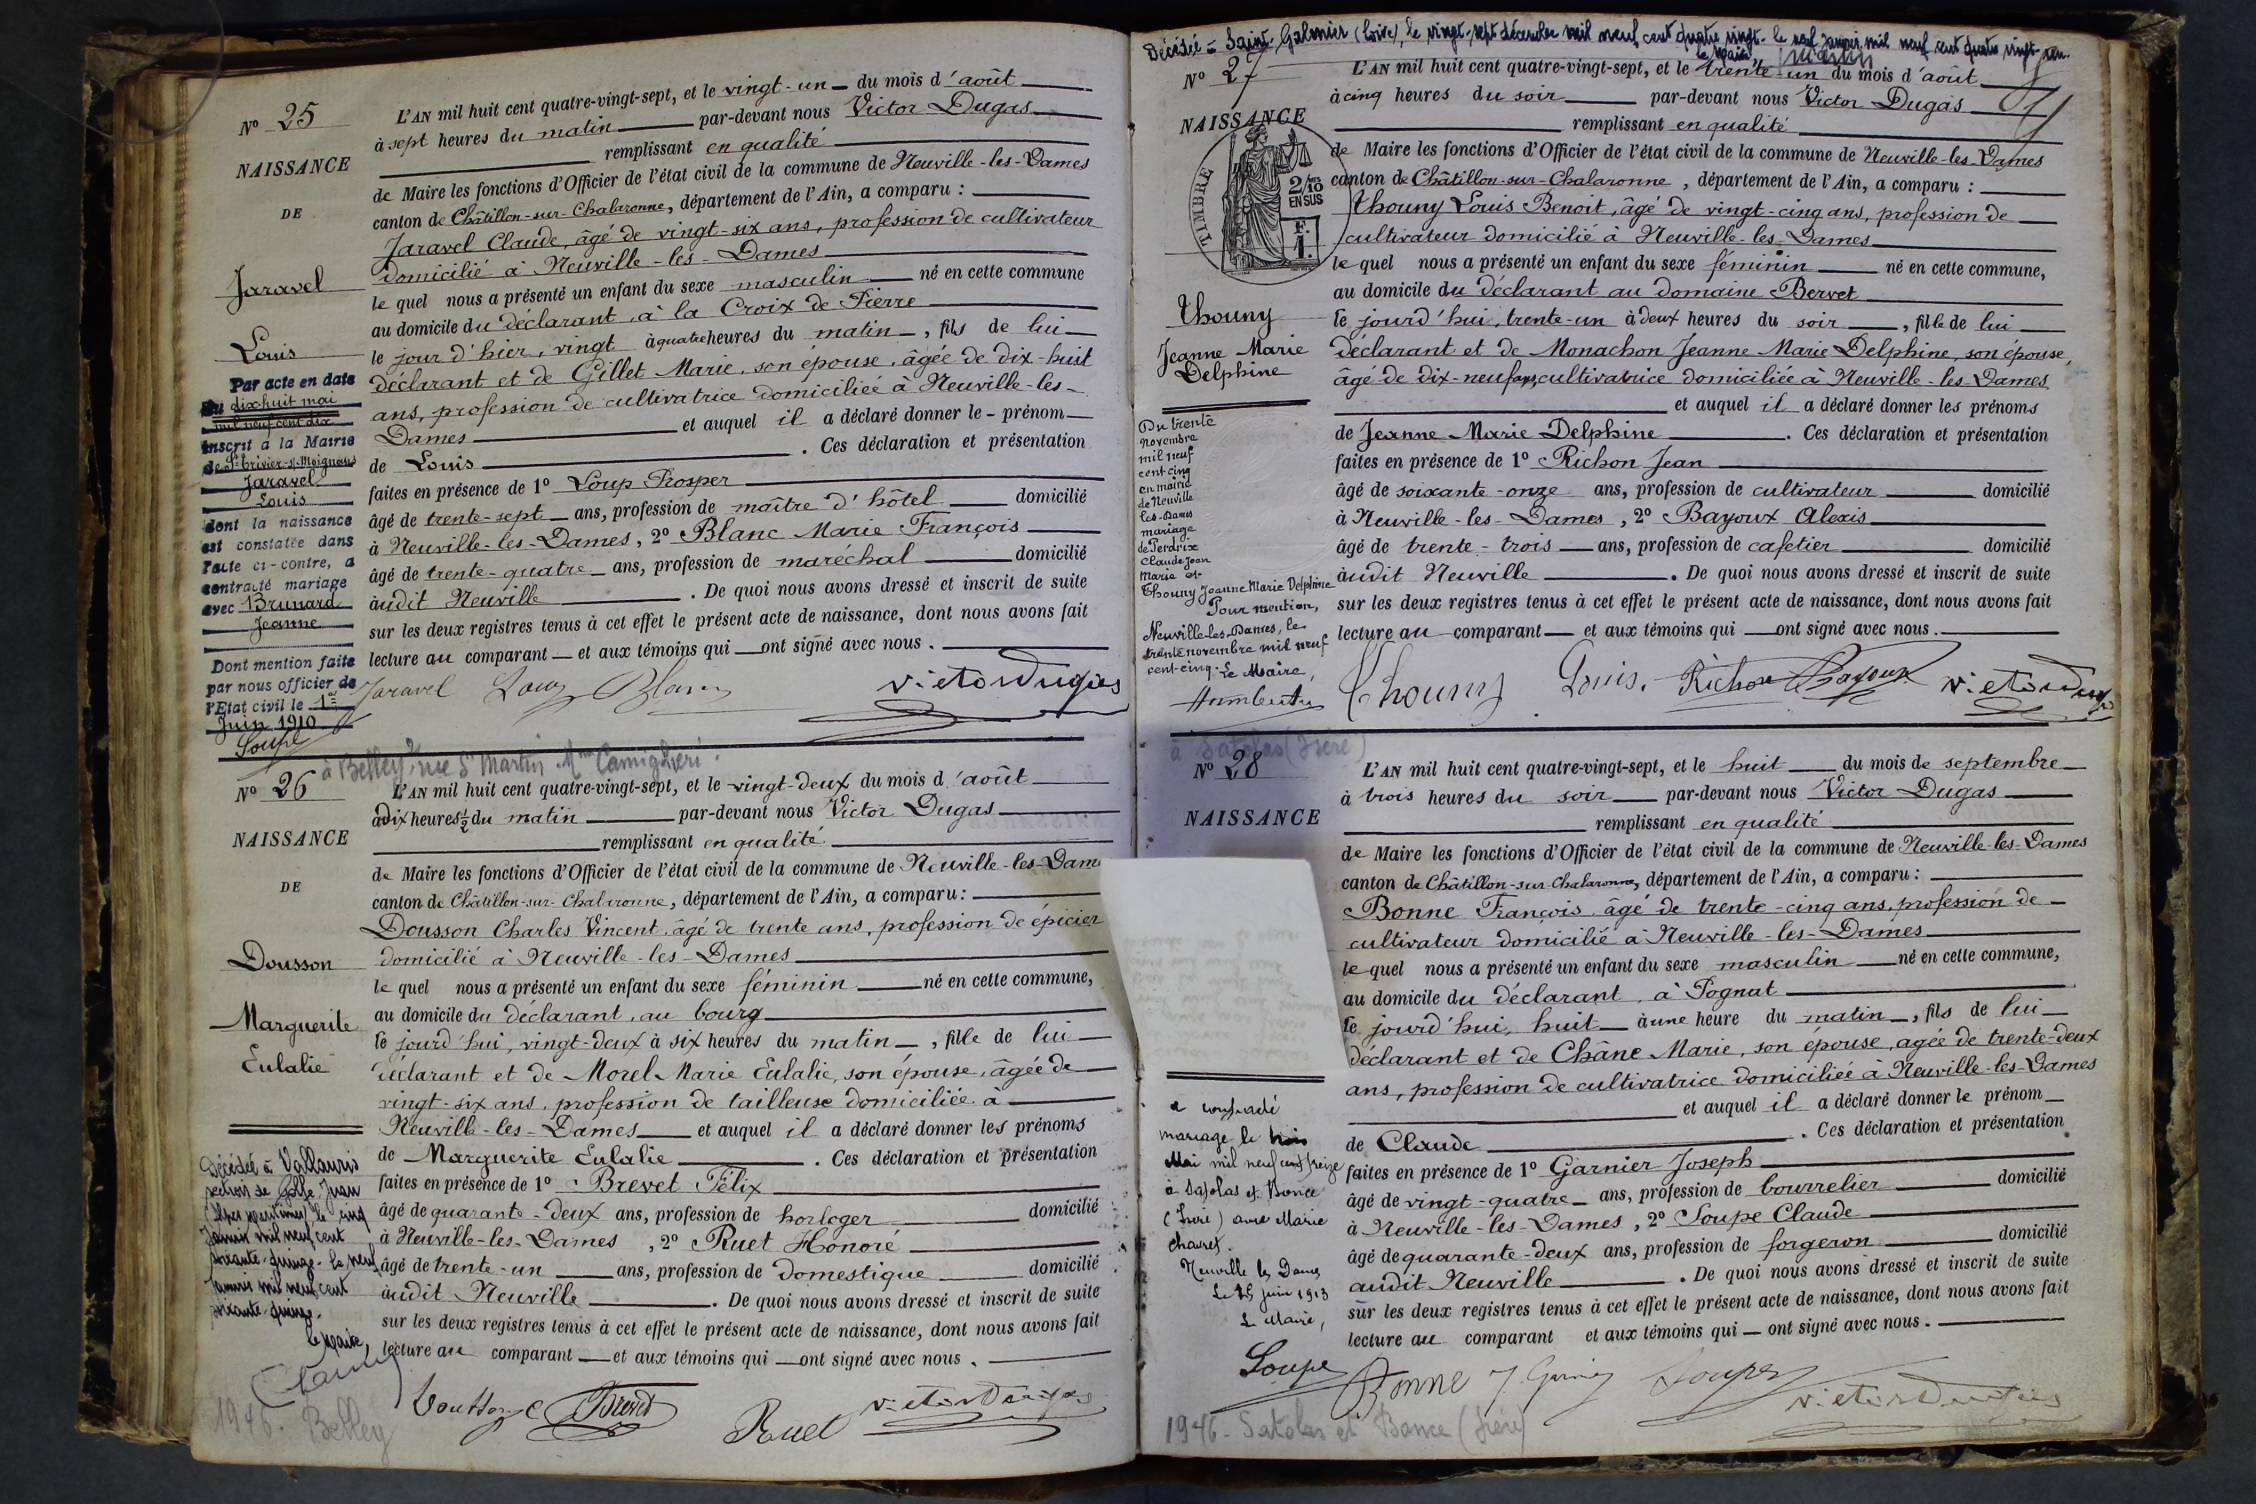 N° 25
NAISSANCE
DE
Jaravel
Louis
Par acte en date
du dix huit mai
mil neuf cent dix
inscrit à la Mairie
de St Trivier-s/-Moignans
Jaravel
Louis
dont la naissance
est constatée dans
l'acte ci-contre, a
contracté mariage
avec Brunard
Jeanne
Dont mention faite
par nous officier de
l'Etat civil le 1er
Juin 1910
Soupe
L'AN mil huit cent quatre-vingt-sept, et le vingt-un du mois d'août
à sept heures du matin par-devant nous Victor Dugas
remplissant en qualité
de Maire les fonctions d'Officier de l'état civil de la commune de Neuville-les-Dames
canton de Châtillon-sur-Chalaronne, département de l'Ain, a comparu :
Jaravel Claude, âgé de vingt-six ans, profession de cultivateur
domicilié à Neuville-les-Dames
le quel nous a présenté un enfant du sexe masculin né en cette commune
au domicile du déclarant, à la Croix de Pierre
le jour d'hier, vingt à quatre heures du matin, fils de lui
déclarant et de Gillet Marie, son épouse, âgée de dix-huit
ans, profession de cultivatrice domiciliée à Neuville-les-
Dames et auquel il a déclaré donner le - prénom
de Louis . Ces déclaration et présentation
faites en présence de 1° Loup Prosper
âgé de trente-sept ans, profession de maître d'hôtel domicilié
à Neuville-les-Dames, 2° Blanc Marie François
âgé de trente-quatre ans, profession de maréchal domicilié
audit Neuville . De quoi nous avons dressé et inscrit de suite
sur les deux registres tenus à cet effet le présent acte de naissance, dont nous avons fait
lecture au comparant et aux témoins qui ont signé avec nous .
Jaravel Loup Blanc Victor Dugas
à Belley, rue St Martin
N° 26
NAISSANCE
DE
Dousson
Marguerite
Eulalie
Décédée à Vallauris
section de Golfe Juan
(Alpes maritimes) le cinq
Janvier mil neuf cent
soixante-quinze - le neuf
Janvier mil neuf cent
soixante-quinze.
Le Maire,
1946. Belley
L'AN mil huit cent quatre-vingt-sept, et le vingt-deux du mois d'août
à dix heures ½ du matin par-devant nous Victor Dugas
remplissant en qualité
de Maire les fonctions d'Officier de l'état civil de la commune de Neuville-les-Dames
canton de Châtillon-sur-Chalaronne, département de l'Ain, a comparu :
Dousson Charles Vincent, âgé de trente ans, profession de épicier
domicilié à Neuville-les-Dames
le quel nous a présenté un enfant du sexe féminin né en cette commune,
au domicile du déclarant, au bourg
le jourd'hui, vingt-deux à six heures du matin, fille de lui
déclarant et de Morel Marie Eulalie, son épouse, âgée de
vingt-six ans, profession de tailleuse domiciliée à
Neuville-les-Dames et auquel il a déclaré donner les prénoms
de Marguerite Eulalie . Ces déclaration et présentation
faites en présence de 1° Brevet Félix
âgé de quarante-deux ans, profession de horloger domicilié
à Neuville-les-Dames , 2° Ruet Honoré
âgé de trente-un ans, profession de domestique domicilié
audit Neuville . De quoi nous avons dressé et inscrit de suite
sur les deux registres tenus à cet effet le présent acte de naissance, dont nous avons fait
lecture au comparant et aux témoins qui ont signé avec nous .
Brevet Ruet Victor Dugas
Décédée à Saint-Galmier (Loire), le vingt-sept décembre mil neuf cent quatre vingt- le neuf janvier mil neuf cent quatre vingt-un.
le Maire,
N° 27
NAISSANCE
TIMBRE
2/10 EN SUS
F. 1.
Thouny
Jeanne Marie
Delphine
Du trente
novembre
mil neuf
cent cinq
en mairie
de Neuville
les-Dames
mariage
de Perdrix
Claude Jean
Marie et
Thouny Jeanne Marie Delphine
Pour mention,
Neuville-les-Dames, le
trente novembre mil neuf
cent-cinq. Le Maire,
L'AN mil huit cent quatre-vingt-sept, et le trente un du mois d'août
à cinq heures du soir par-devant nous Victor Dugas
remplissant en qualité
de Maire les fonctions d'Officier de l'état civil de la commune de Neuville-les-Dames
canton de Châtillon-sur-Chalaronne , département de l'Ain, a comparu :
Thouny Louis Benoit, âgé de vingt-cinq ans, profession de
cultivateur domicilié à Neuville-les-Dames
le quel nous a présenté un enfant du sexe féminin né en cette commune,
au domicile du déclarant au domaine Bervet
le jourd'hui, trente-un à deux heures du soir , fille de lui
déclarant et de Monachon Jeanne Marie Delphine, son épouse,
âgé de dix-neuf ans, cultivatrice domiciliée à Neuville-les-Dames
et auquel il a déclaré donner les prénoms
de Jeanne Marie Delphine . Ces déclaration et présentation
faites en présence de 1° Richon Jean
âgé de soixante-onze ans, profession de cultivateur domicilié
à Neuville-les-Dames , 2° Bayoux Alexis
âgé de trente-trois ans, profession de cafetier domicilié
audit Neuville . De quoi nous avons dressé et inscrit de suite
sur les deux registres tenus à cet effet le présent acte de naissance, dont nous avons fait
lecture au comparant et aux témoins qui ont signé avec nous .
Thouny Louis. Richon Bayoux Victor Dugas
à Satolas (Isère)
N° 28
NAISSANCE
a contracté
mariage le trois
Mai mil neuf cent treize
à Satolas et Bonce
(Isère) avec Marie
Chavret.
Neuville les Dames
Le 25 juin 1913
Le Maire,
Soupe
L'AN mil huit cent quatre-vingt-sept, et le huit du mois de septembre
à trois heures du soir par-devant nous Victor Dugas
remplissant en qualité
de Maire les fonctions d'Officier de l'état civil de la commune de Neuville-les-Dames
canton de Châtillon-sur-Chalaronne, département de l'Ain, a comparu :
Bonne François, âgé de trente-cinq ans, profession de
cultivateur domicilié à Neuville-les-Dames
le quel nous a présenté un enfant du sexe masculin né en cette commune,
au domicile du déclarant, à Pognat
le jourd'hui, huit à une heure du matin, fils de lui
déclarant et de Châne Marie, son épouse, agée de trente-deux
ans, profession de cultivatrice domiciliée à Neuville-les-Dames
et auquel il a déclaré donner le prénom
de Claude . Ces déclaration et présentation
faites en présence de 1° Garnier Joseph
âgé de vingt-quatre ans, profession de bourrelier domicilié
à Neuville-les-Dames , 2° Soupe Claude
âgé de quarante-deux ans, profession de forgeron domicilié
audit Neuville . De quoi nous avons dressé et inscrit de suite
sur les deux registres tenus à cet effet le présent acte de naissance, dont nous avons fait
lecture au comparant et aux témoins qui ont signé avec nous .
Bonne J. Garnier Soupe Victor Dugas
1946 - Satolas et Bonce (Isère)